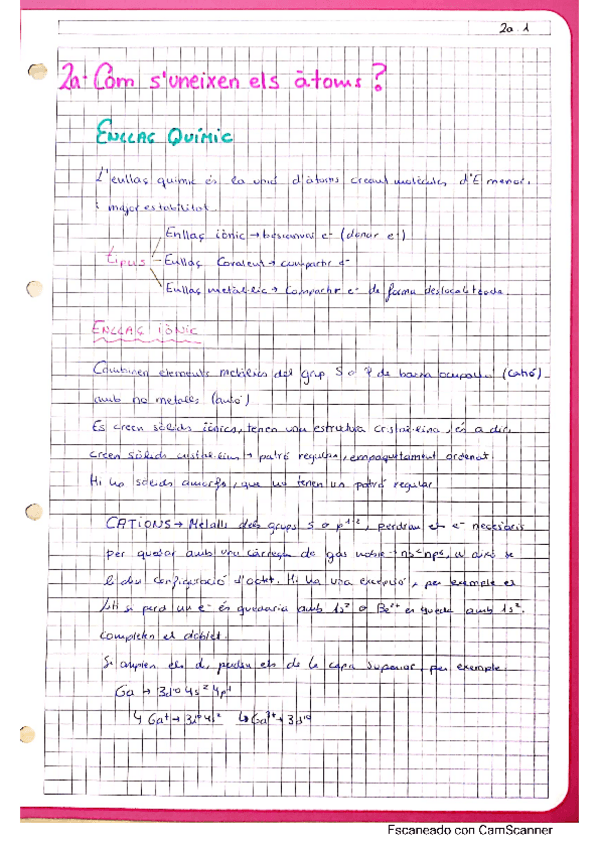 2a.1
2a. Com s'uneixen els àtoms?
ENLLAÇ QUÍMIC
L'enllaç químic és la unió d'àtoms creant molècules d'E menor.
i major estabilitat
Enllaç iònic → e⁻ (donar e⁻)
tipus - Enllaç Covalent → compartir e⁻
Enllaç metàl·lic → Compartir e⁻ de forma deslocalitzada.
ENLLAÇ IÒNIC
Combinen elements metàl·lics del grup S o P de baixa ocupació (catió)
amb no metalls (anió)
Es creen sòlids iònics, tenen una estructura cristal·lina, és a dir,
creen sòlids cristal·lins → patró regular, empaquetament ordenat.
Hi ha sòlids amorfs, que no tenen un patró regular
CATIONS → Metalls dels grups S o p¹⁻², perdran els e⁻ necessaris
per quedar amb una càrrega de gas noble → ns²np⁶, a això se
li diu configuració d'octet. Hi ha una excepció, per exemple el
Li si perd un e⁻ és quedaria amb 1s² o Be²⁺ es queda amb 1s².
completen el doblet.
Si omplen els d, perden els de la capa superior, per exemple.
Ga → 3d¹⁰ 4s² 4p¹
↳ Ga⁺ → 3d¹⁰ 4s² ↳ Ga³⁺ → 3d¹⁰
Escaneado con CamScanner